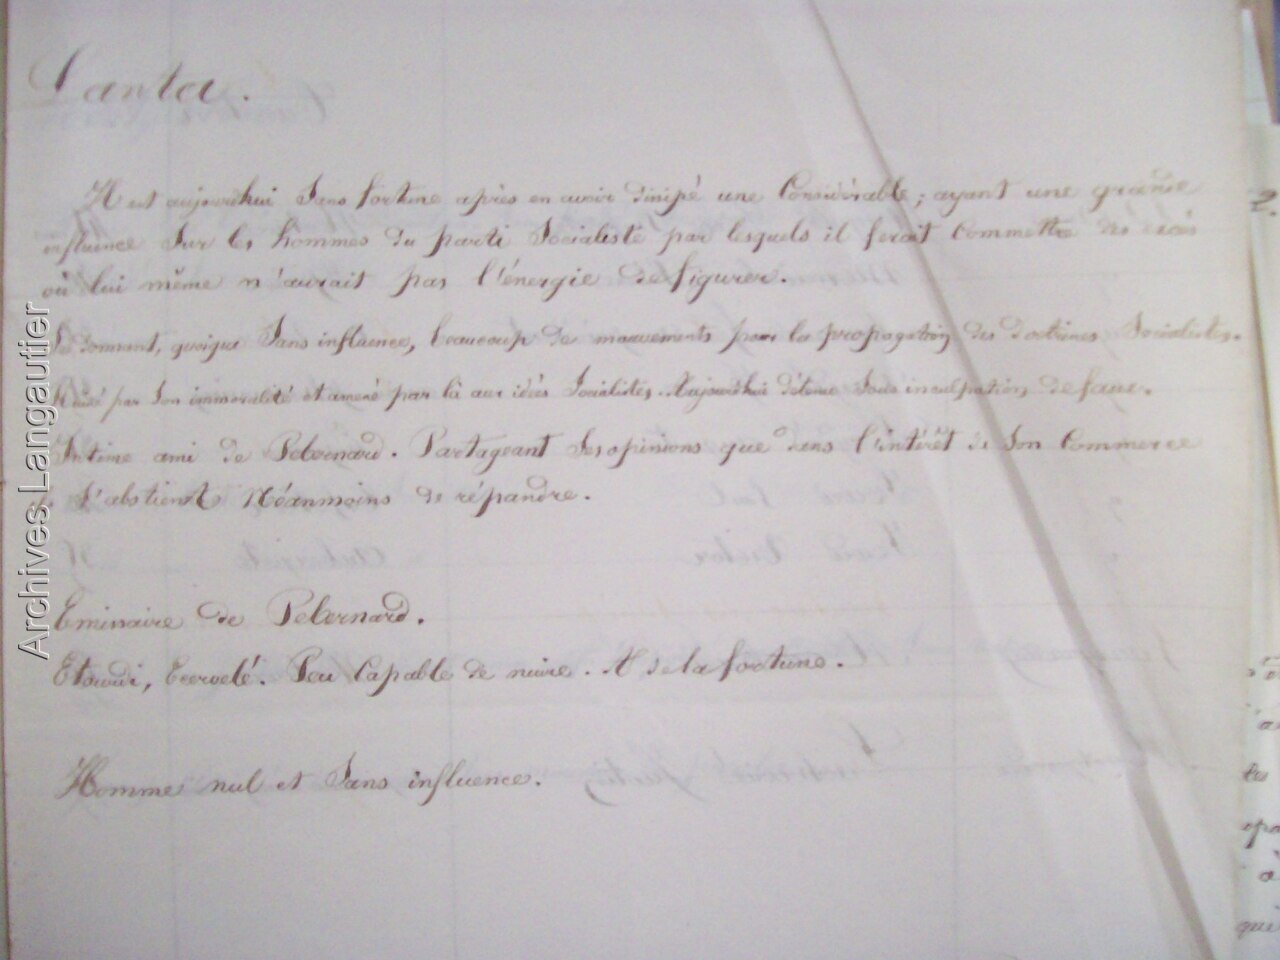 Canta.
Il est aujourd'hui Sans fortune après en avoir dissipé une Considérable ; ayant une grande
influence Sur les hommes du parti Socialiste par lesquels il ferait Commettre des excès
où lui même n'aurait pas l'énergie de figurer.
Se donnant, quoique Sans influence, beaucoup de mouvements pour la propagation des doctrines Socialistes.
Ruiné par Son immoralité et amené par là aux idées Socialistes. Aujourd'hui détenu Sous inculpation de faux.
Intime ami de Pebernard. Partageant Ses opinions que dans l'intérêt de Son Commerce
il S'abstient Néanmoins de répandre.
Emissaire de Pebernard.
Etourdi, Ecervelé. Peu Capable de nuire. A de la fortune.
Homme nul et Sans influence.
Archives Langautier